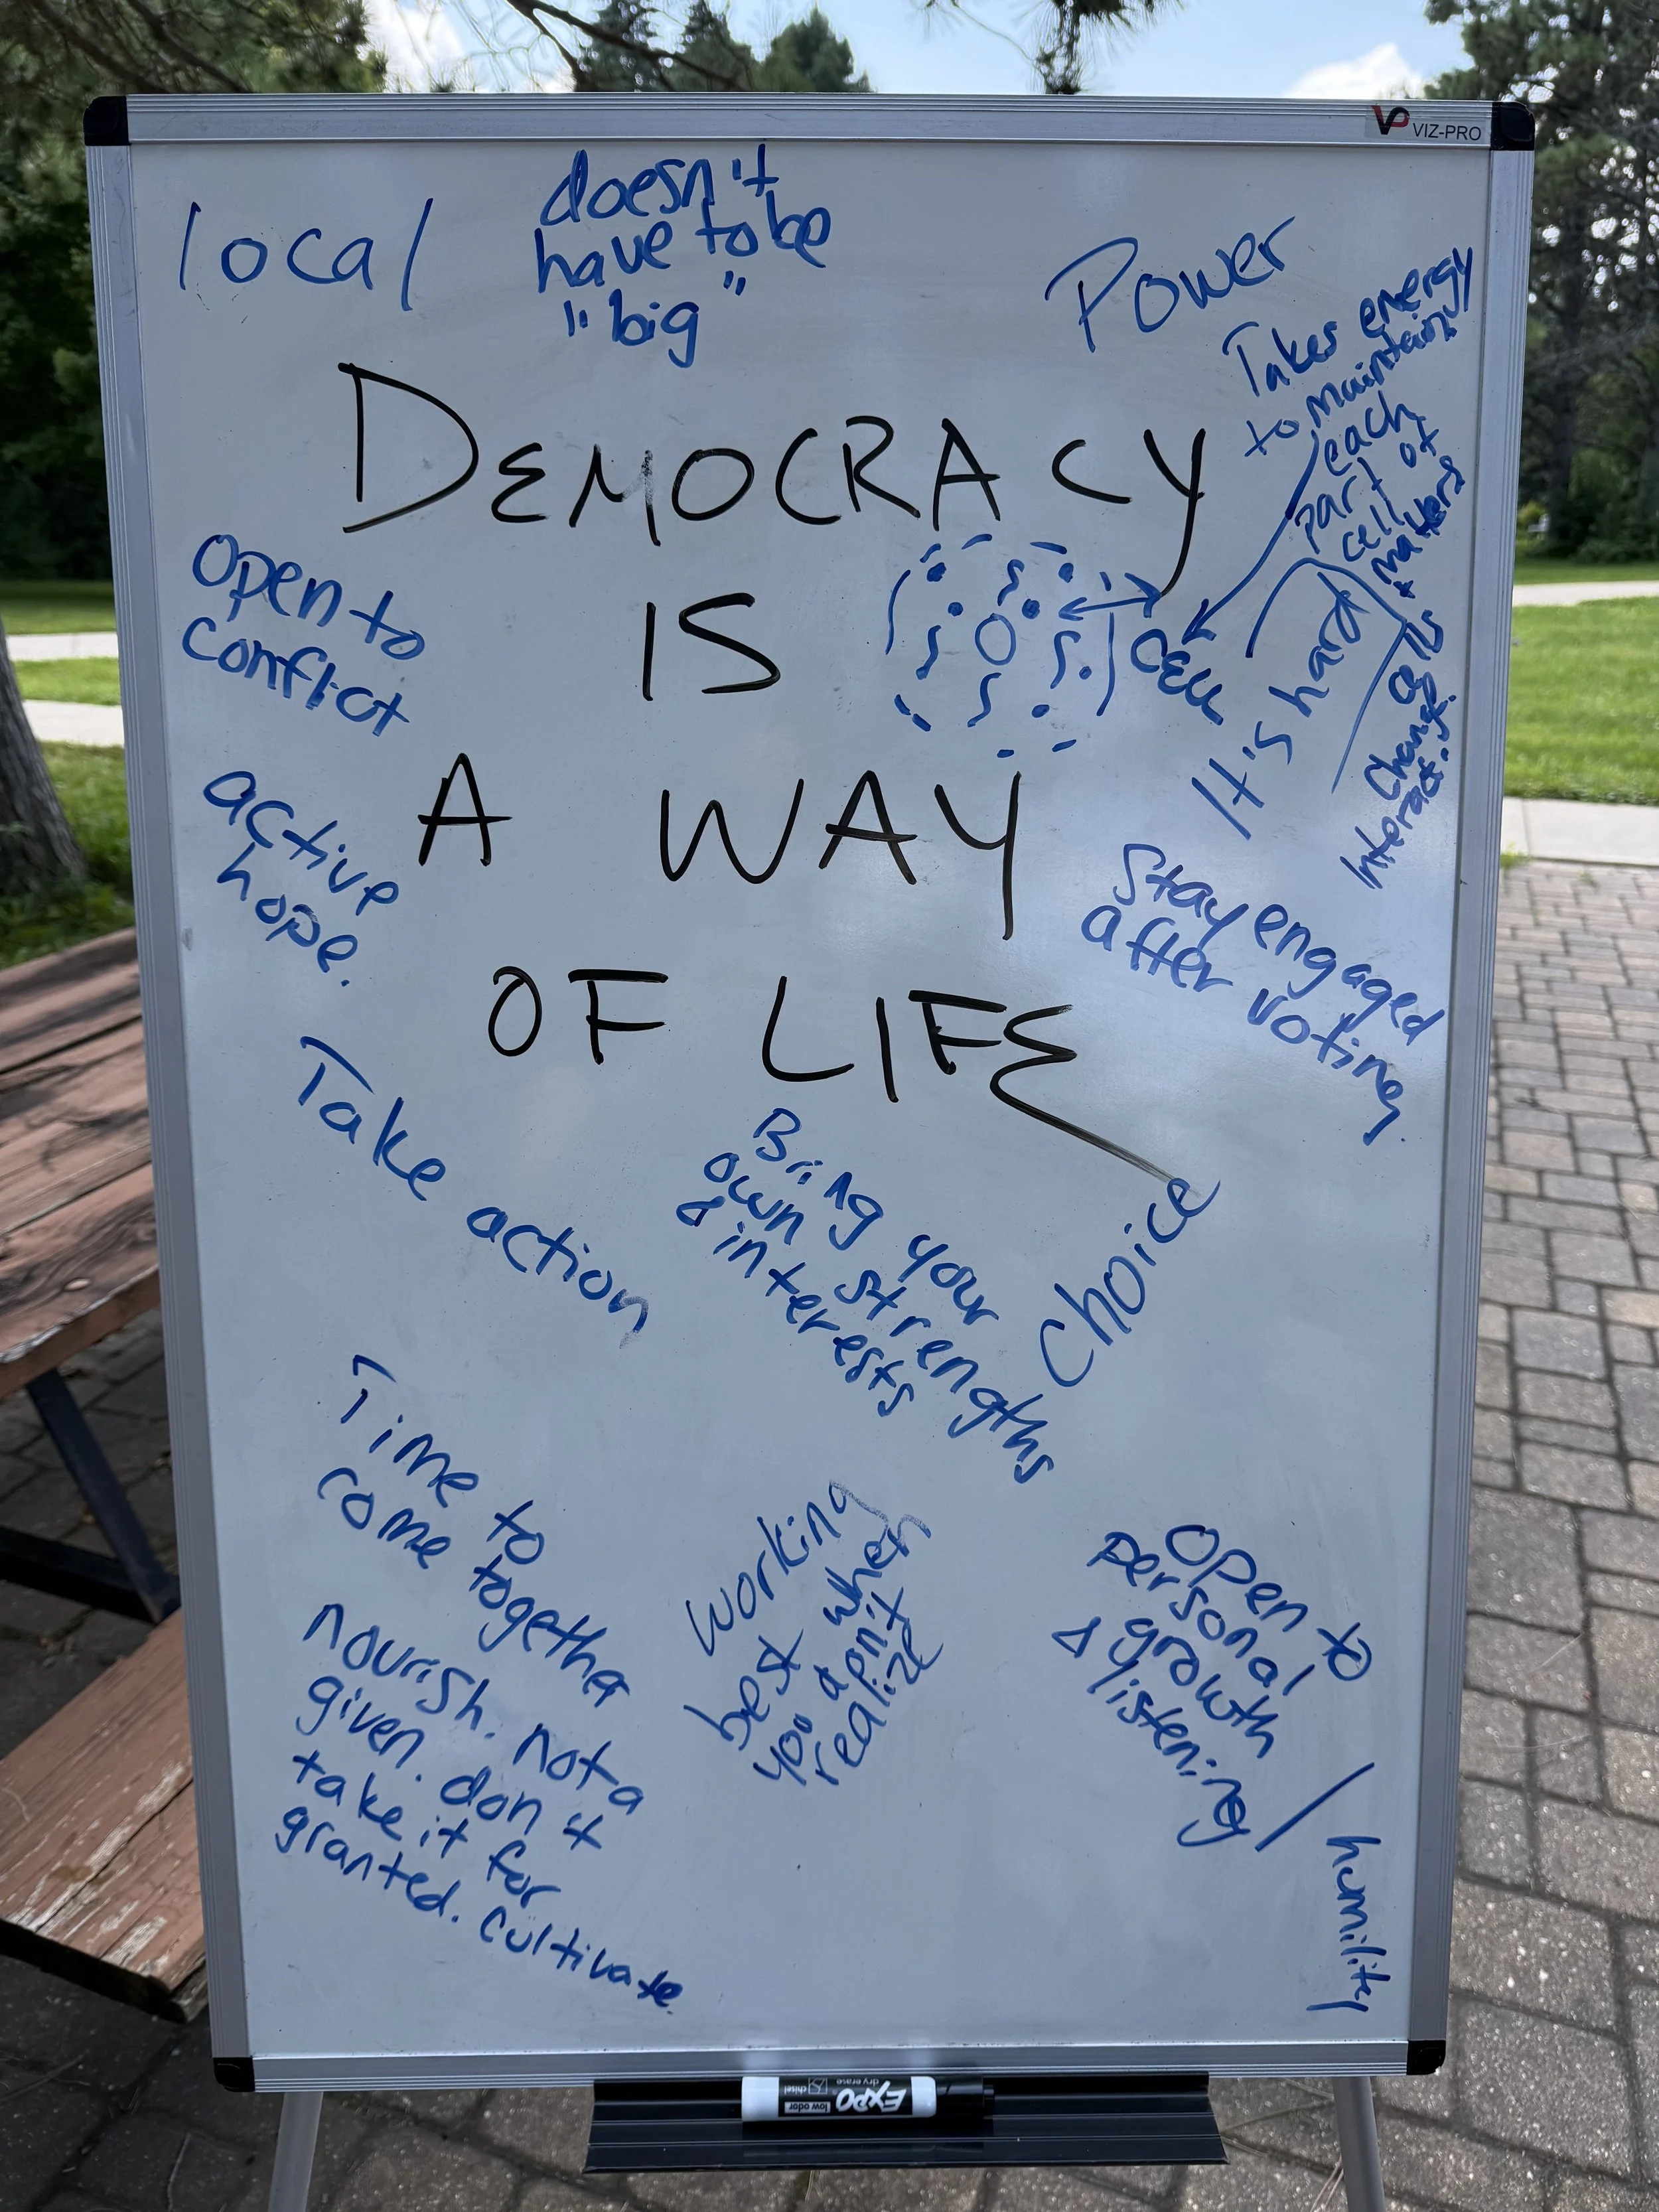 VP VIZ-PRO
local
doesn't
have to be
"big"
Power
Takes energy
to maintain
each
part of
cell
matters
&
changes
Interact.
It's hard
cell
DEMOCRACY
IS
A WAY
OF LIFE
open to
conflict
active
hope.
Stay engaged
after voting
Take action
Bring your
own strengths
& interests
Choice
Time to
come together
nourish. not a
given. don't
take it for
granted. cultivate
working
best when
realize
open to
personal
growth
& listening /
humility
EXPO
dry erase
chisel
low odor